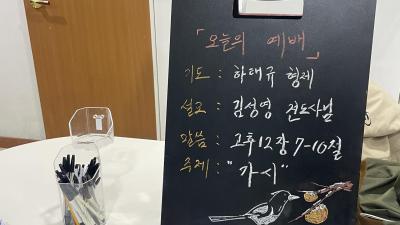 「오늘의 예배」
기도 : 하태규 형제
설교 : 김성영 전도사님
말씀 : 고후12장 7-10절
주제 : "가시"